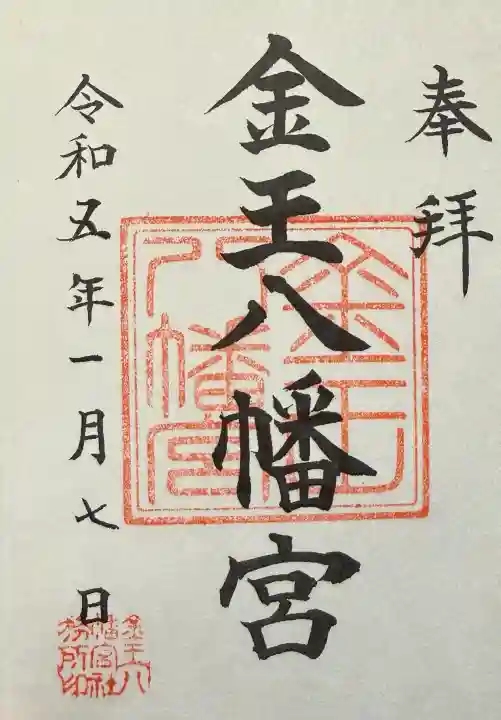 奉拝
金王八幡宮
令和五年一月七日
金王八幡宮
金王八幡宮社務所印